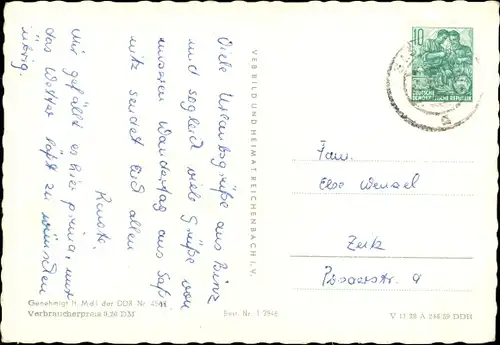 Viele Urlaubsgrüße aus Binz
und sogleich viele Grüße von
unserem Wandertag aus Saß-
nitz sendet Euch allen
Renate.
Mir gefällt es hier prima, nur
das Wetter läßt zu wünschen
übrig.
VEB BILD UND HEIMAT REICHENBACH I. V.
10
DEUTSCHE
DEMOKRATISCHE REPUBLIK
Fam.
Else Wenzel
Zeitz
Posaerstr. 9
Genehmigt M. MdI. der DDR Nr.
Verbraucherpreis 0,20 DM
Best. Nr. 1 7946
V 11 28 A 246/59 DDR